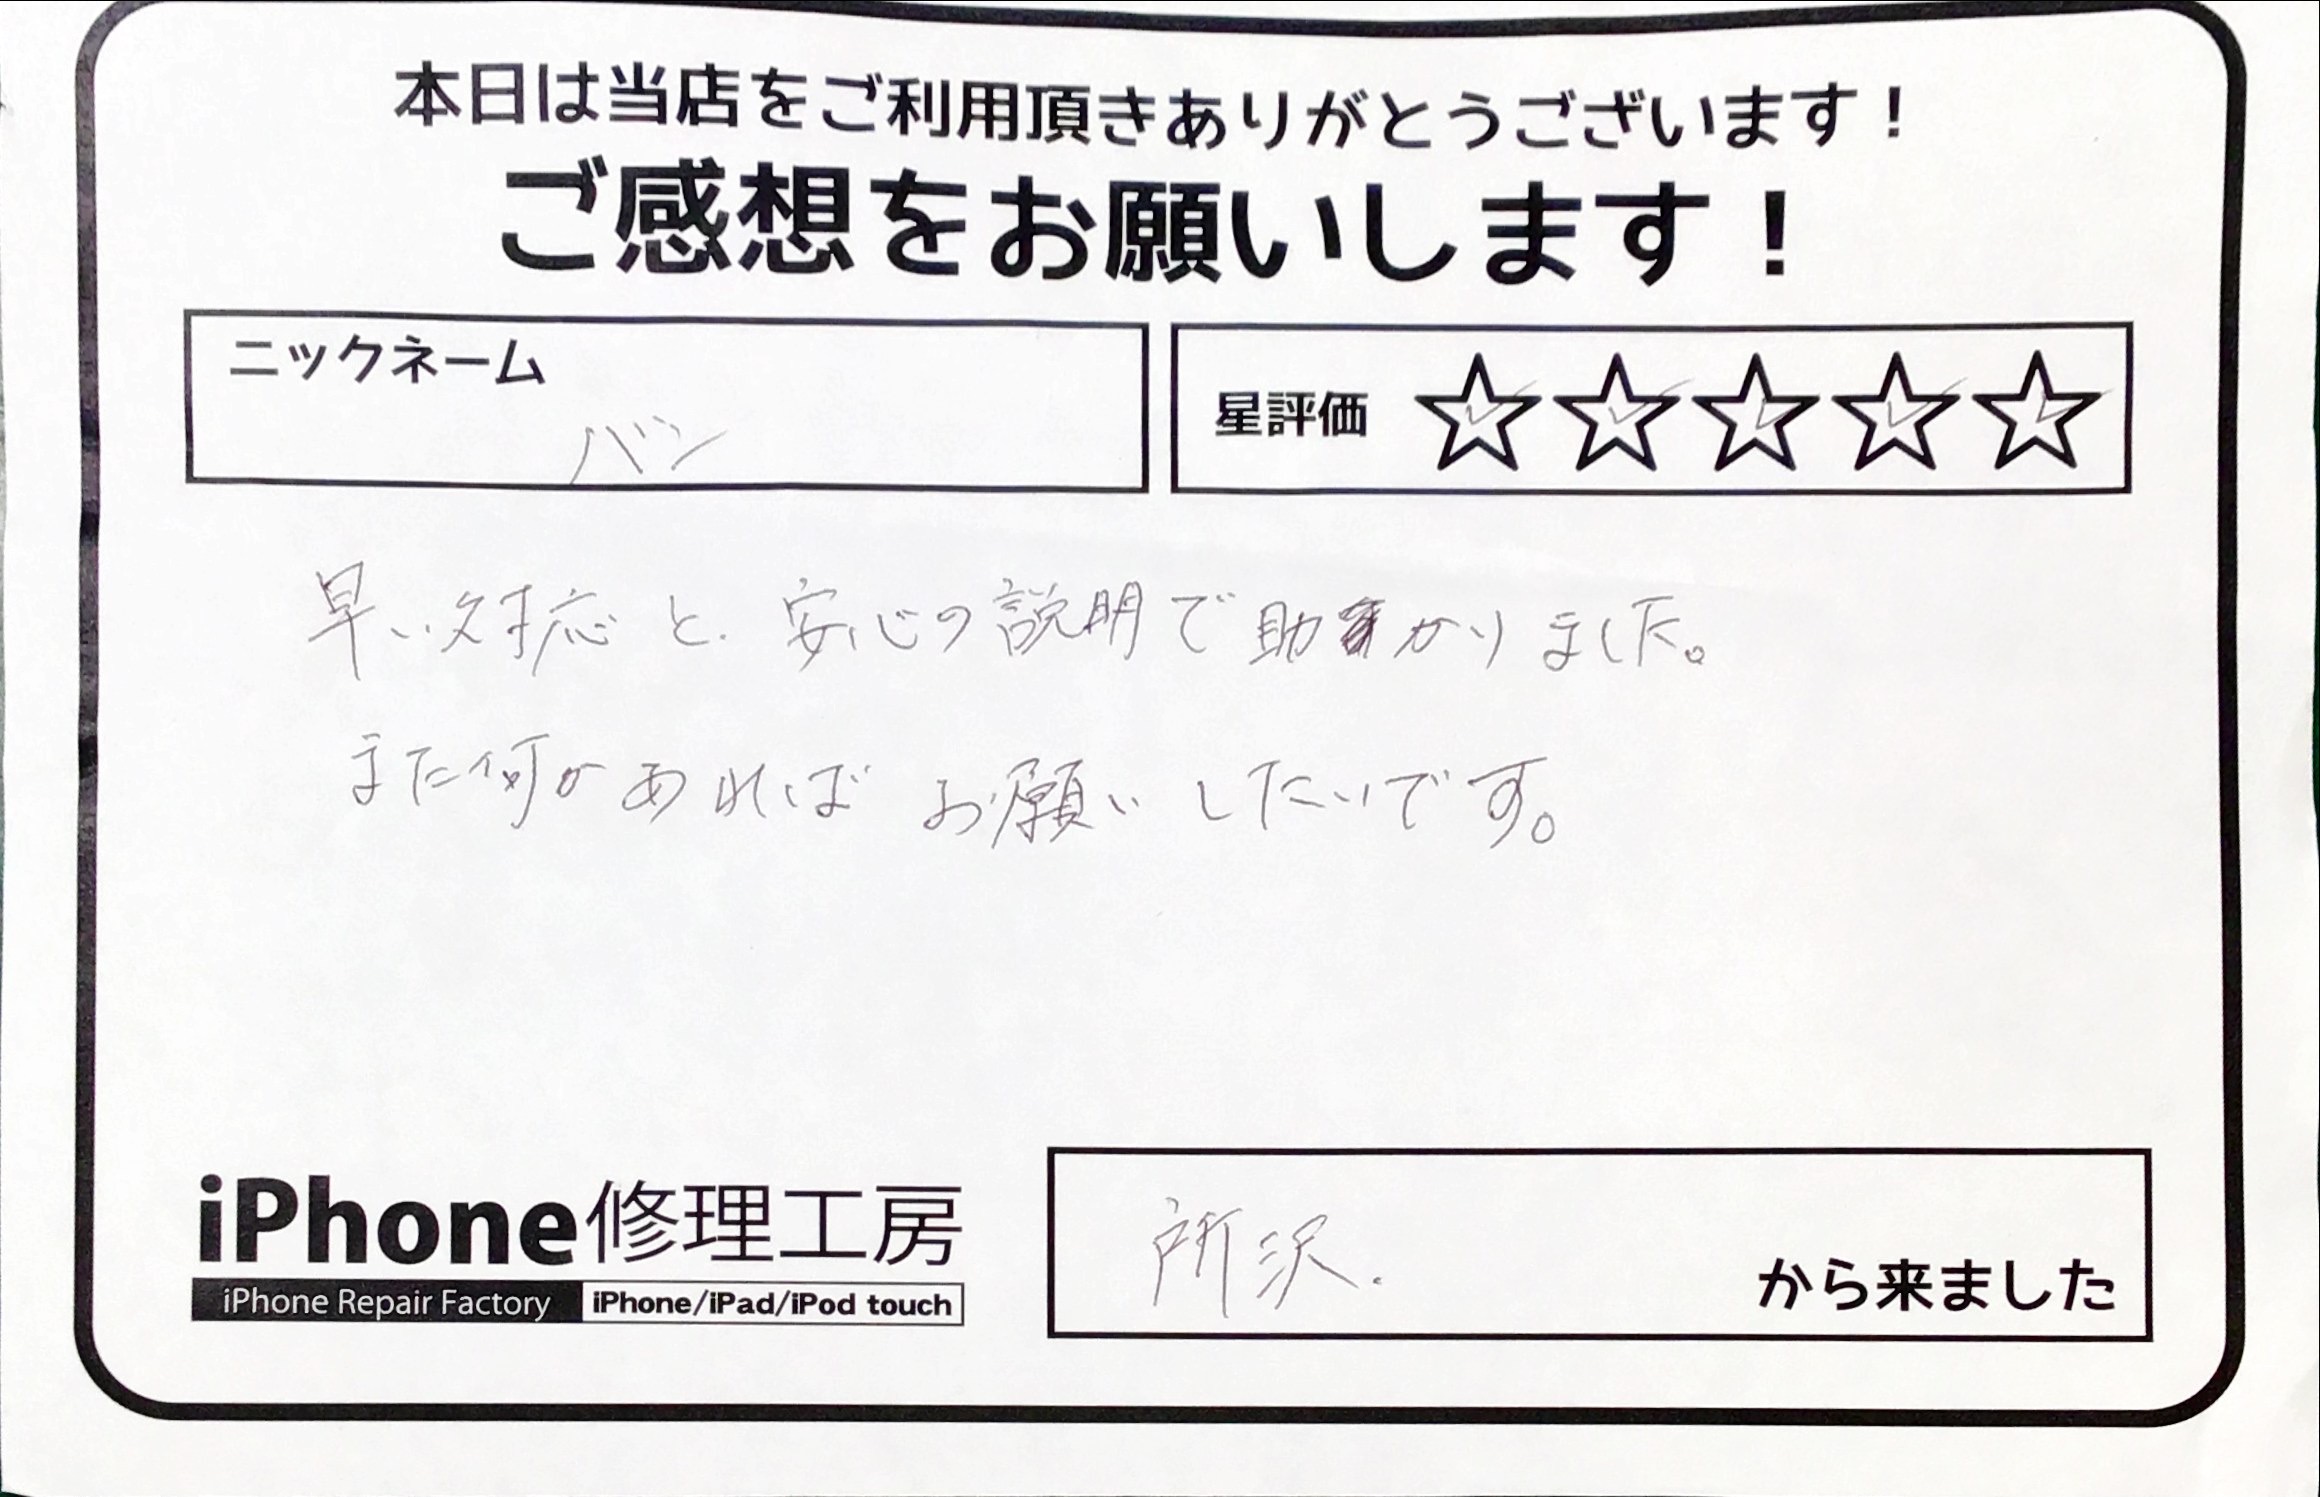 本日は当店をご利用頂きありがとうございます！
ご感想をお願いします！
ニックネーム
バン
星評価
早い対応と、安心の説明で助かりました。
また何かあればお願いしたいです。
iPhone修理工房
iPhone Repair Factory iPhone/iPad/iPod touch
所沢.
から来ました